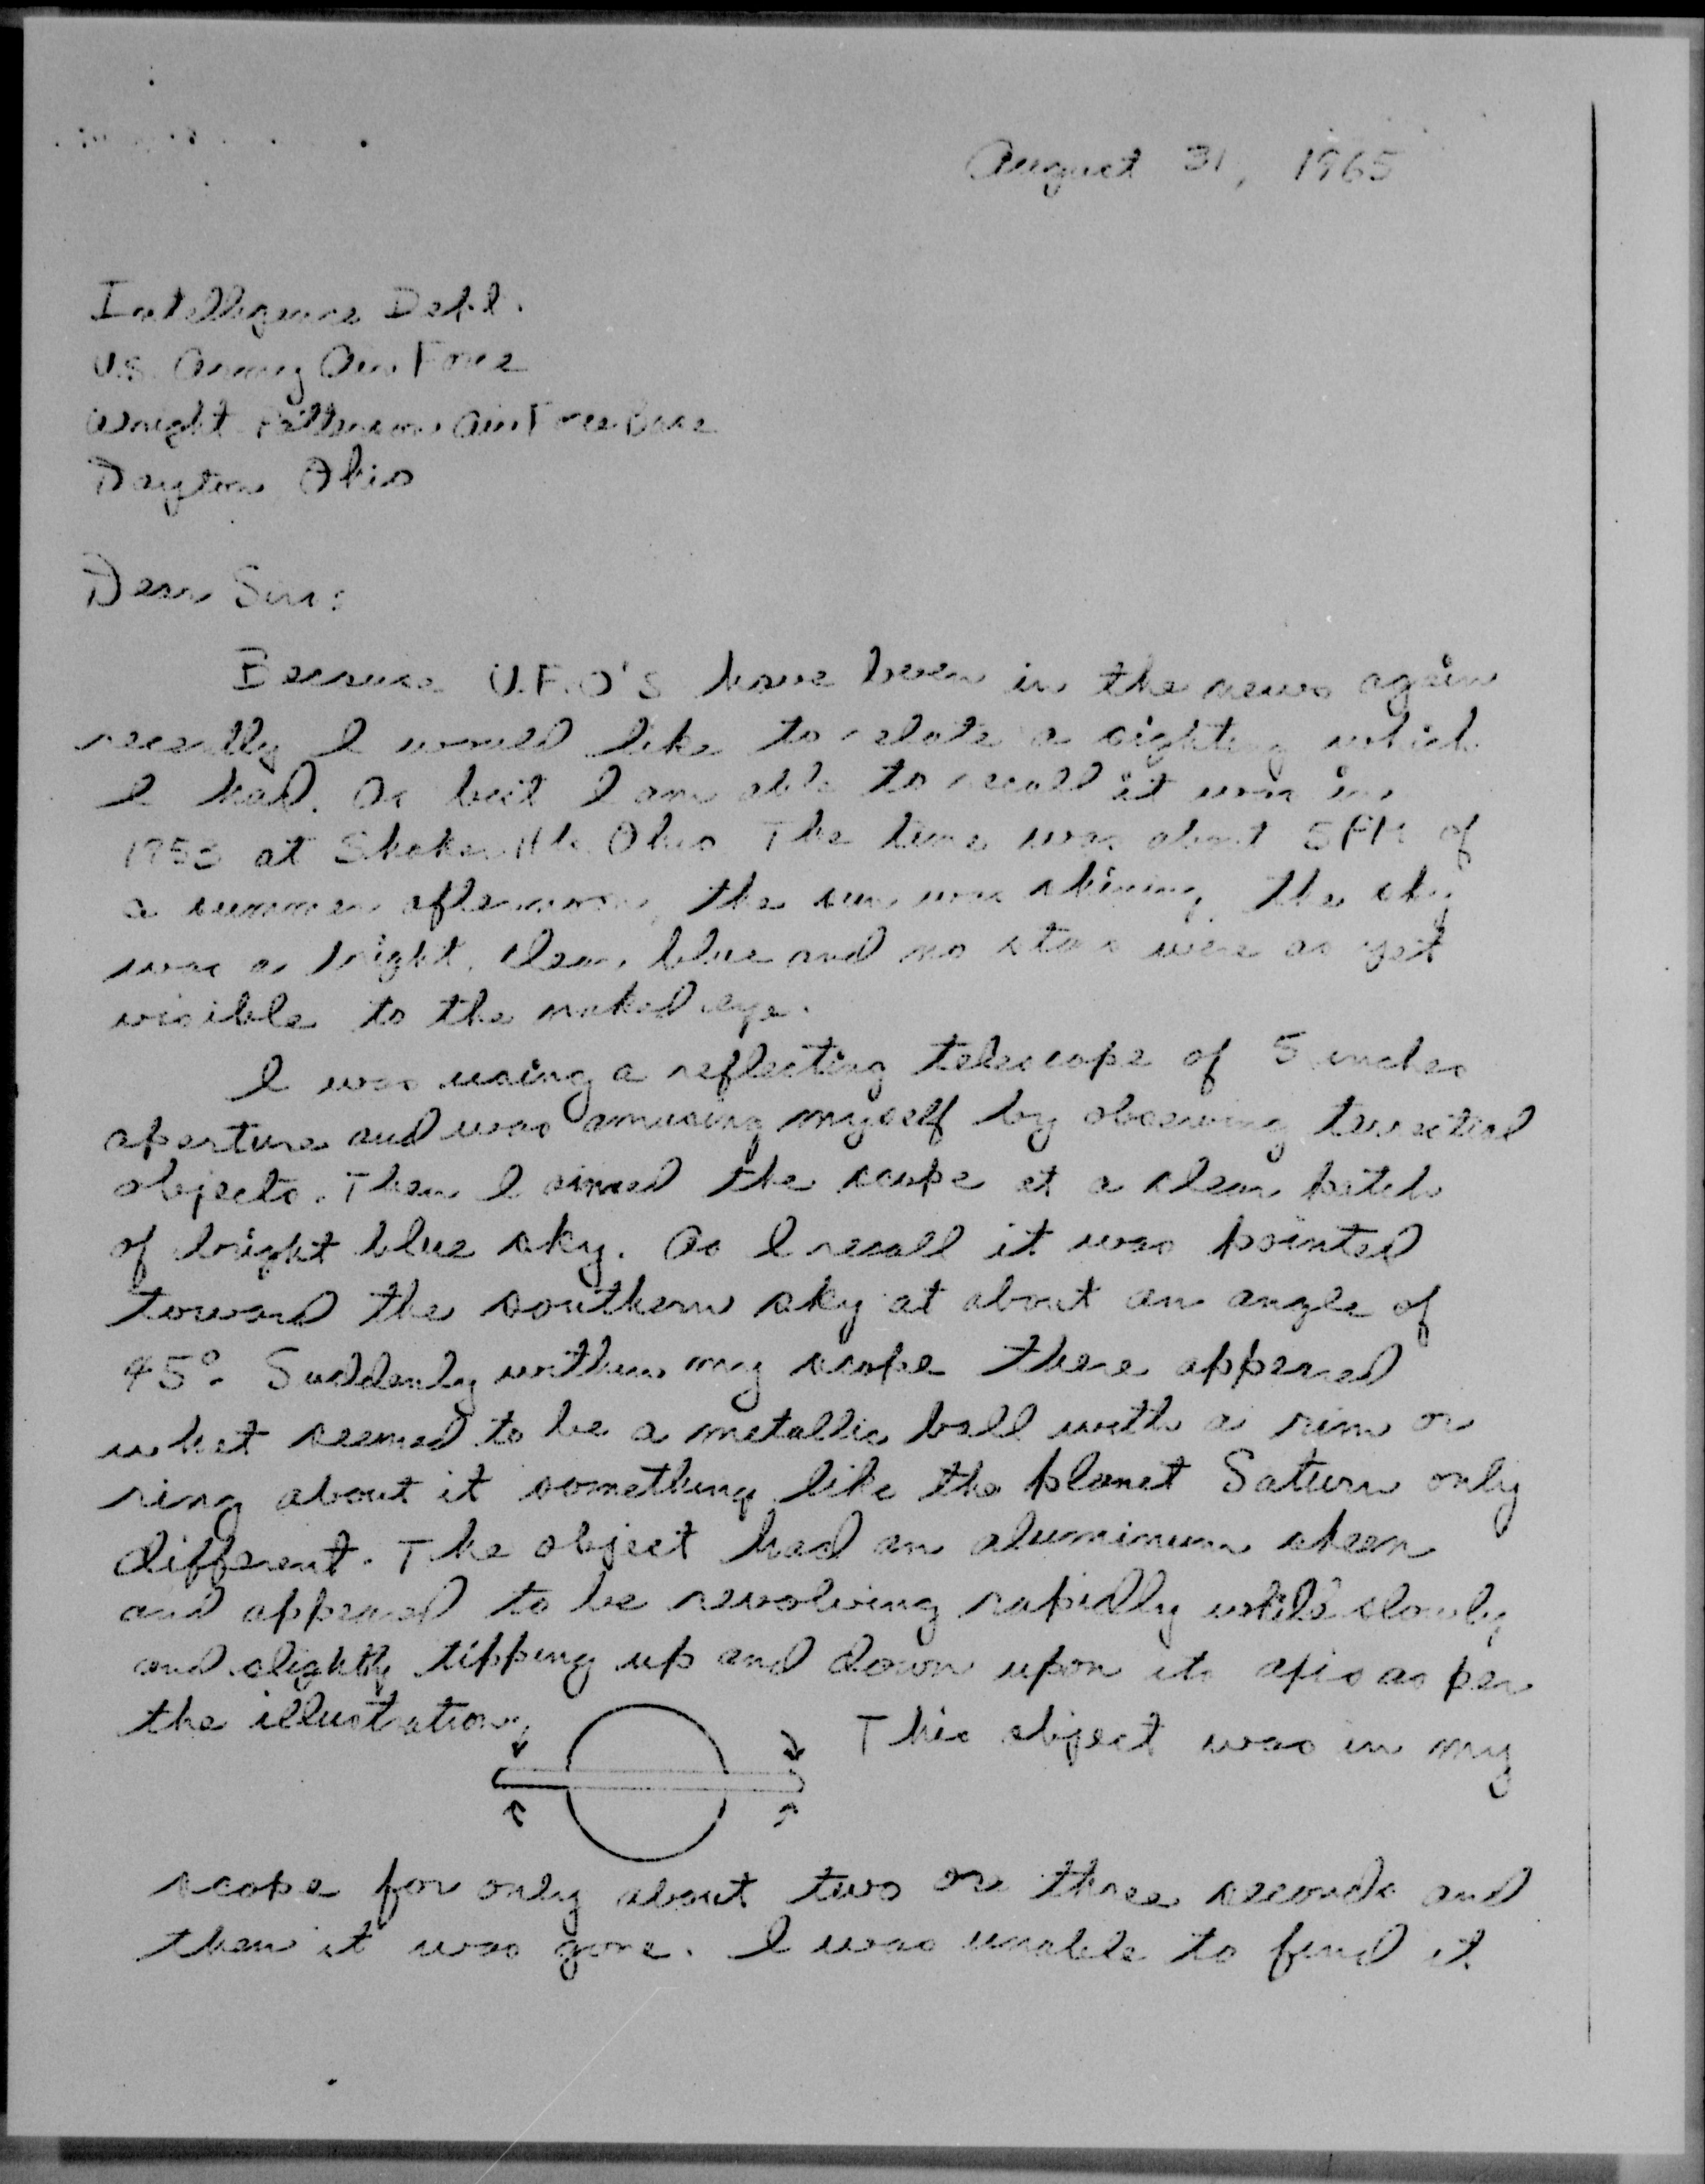 August 31, 1965
Intelligence Dept.
U.S. Army Air Force
Wright Patterson Air Force Base
Dayton, Ohio
Dear Sirs:
Because U.F.O's have been in the news again
recently I would like to relate a sighting which
I had. As best I am able to recall it was in
1953 at Shaker Hts. Ohio The time was about 5 PM of
a summer afternoon, the sun was shining, the sky
was a bright, clear, blue and no stars were as yet
visible to the naked eye.
I was using a reflecting telescope of 5 inches
aperture and was amusing myself by observing
objects. Then I aimed the scope at a clear patch
of bright blue sky. As I recall it was pointed
toward the southern sky at about an angle of
45°. Suddenly within my scope there appeared
what seemed to be a metallic ball with a rim or
ring about it something like the planet Saturn only
different. The object had an aluminum sheen
and appeared to be revolving rapidly while slowly
and slightly tipping up and down upon its axis as per
the illustration. This object was in my
scope for only about two or three seconds and
then it was gone. I was unable to find it